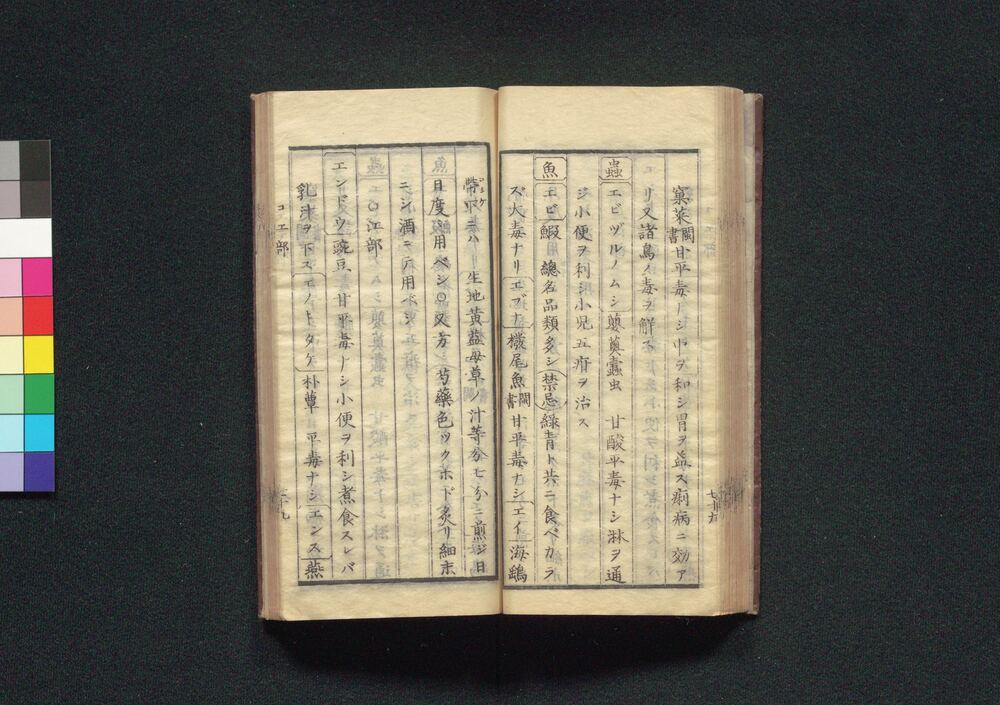 菓菜 閩書 甘平毒ナシ中ヲ和シ胃ヲ益ス痢病ニ効ア
リ又諸鳥ノ毒ヲ解ス
蟲 エビヅルノムシ 蘡薁蠹虫 甘酸平毒ナシ淋ヲ通
ジ小便ヲ利シ小児五疳ヲ治ス
魚 エビ 鰕 總名品類多シ 禁忌 緑青ト共ニ食ベカラ
ズ大毒ナリ エブナ 機尾魚 閩書 甘平毒ナシ エイ 海鷂
七 廿九
魚
帶下ニハ 生地黄益母草ノ汁等分七分ニ煎ジ日
日度々用ベシ〇又方 芍藥色ツクホド炙リ細末
ニシ酒ニテ用ベシ
〇江部
エンドウ 豌豆 甘平毒ナシ小便ヲ利シ煮食スレバ
乳汁ヲ下ス エノキタケ 朴蕈 平毒ナシ エンス 燕
コエ部